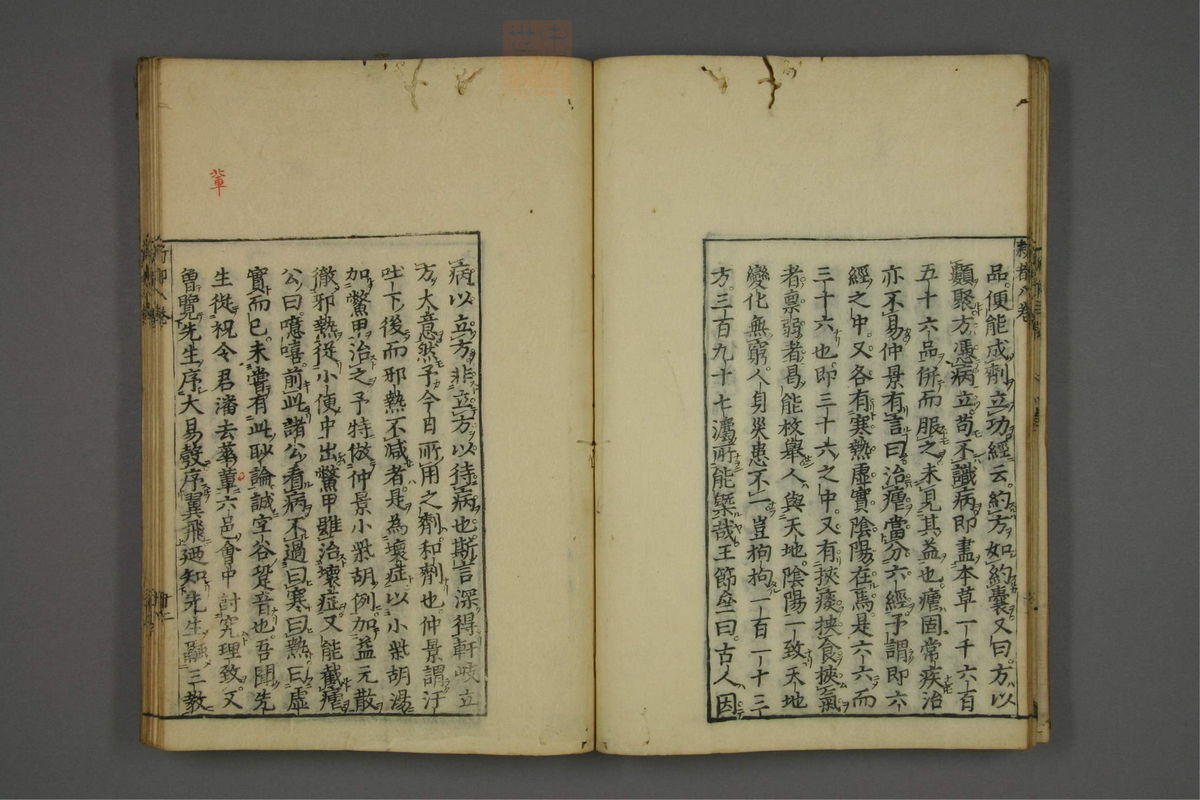 品便能成劑立功經云約方如約囊又曰方以
類聚方憑病立苟不識病即盡本草一千六百
五十六品併而服之未見其益也瘧固常疾治
亦不易仲景有言曰治瘧當分六經予謂即六
經之中又各有寒熱虛實陰陽在焉是六六而
三十六也即三十六之中又有挾痰挾食挾氣
者禀弱者曷能枚舉人與天地陰陽一致天地
變化無窮人身災患不一豈拘拘一百一十三
方三百九十七灋所能槩哉王節齋曰古人因
病以立方非立方以待病也斯言深得軒岐立
方大意然予今日所用之劑和劑也仲景謂汗
吐下後而邪熱不减者是為壞症以小柴胡湯
加鱉甲治之予特倣仲景小柴胡例加益元散
徹邪熱從小便中出鱉甲雖治壞症又能截瘧
公曰噫嘻前此諸公看病不過曰寒曰熱曰虛
實而已未嘗有此耿論誠空谷跫音也吾聞先
生從祝令君潘去華葷六邑會中討究理致又
曾覽先生序大易敲序翼飛廼知先生融三教
輩